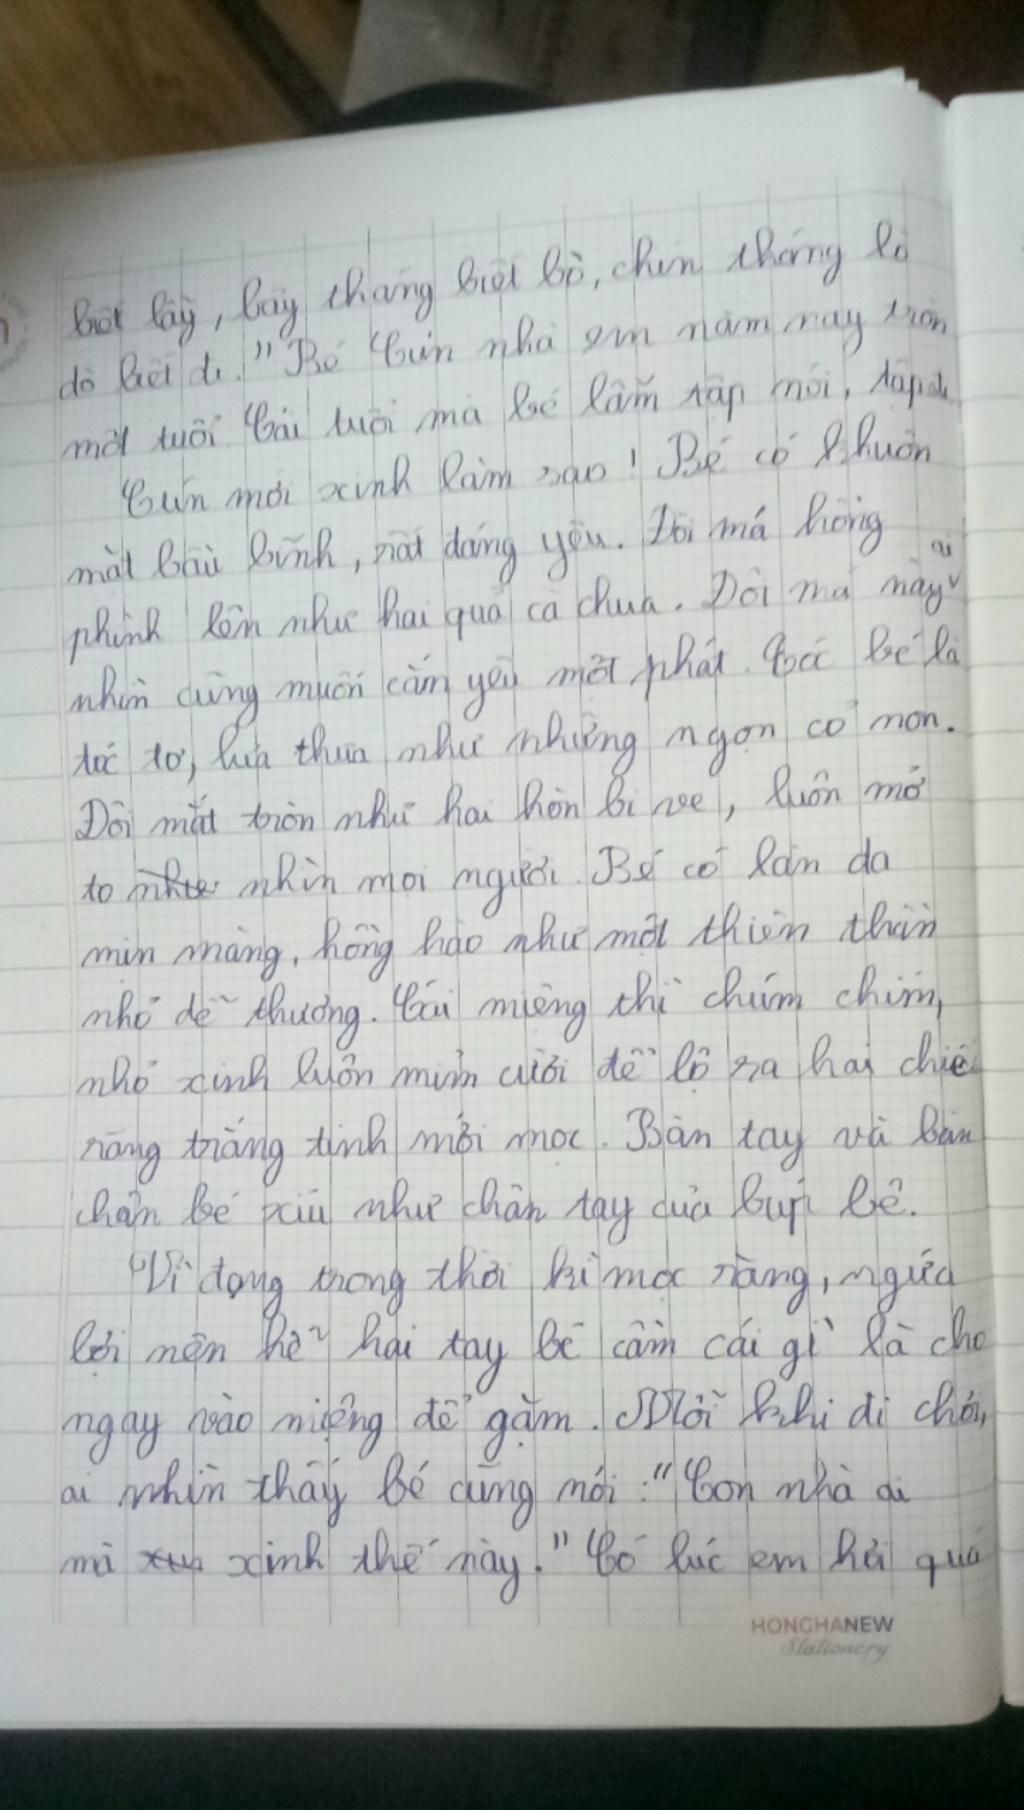 biết lẫy, bảy tháng biết bò, chín tháng lò
dò biết đi." Bé Cún nhà em năm nay tròn
một tuổi Cái tuổi mà bé lẫm tập nói, tập đi
Cún mới xinh làm sao! Bé có khuôn
mặt bầu bĩnh, rất đáng yêu. Đôi má hồng
phính lên như hai quả cà chua. Đôi má này ai
nhìn cũng muốn cắn yêu một phát. Tóc bé là
tóc tơ, lưa thưa như những ngọn cỏ non.
Đôi mắt tròn như hai hòn bi ve, luôn mở
to nhìn mọi người. Bé có làn da
mịn màng, hồng hào như một thiên thần
nhỏ dễ thương. Cái miệng thì chúm chím,
nhỏ xinh luôn mỉm cười để lộ ra hai chiếc
răng trắng tinh mới mọc. Bàn tay và bàn
chân bé xíu như chân tay của búp bê.
Vì đang trong thời kì mọc răng, ngứa
lợi nên hễ hai tay bé cầm cái gì là cho
ngay vào miệng để gặm. Mỗi khi đi chơi,
ai nhìn thấy bé cũng nói: "Con nhà ai
mà xinh thế này." Có lúc em hỏi quá
HONGHANEW
Stationery